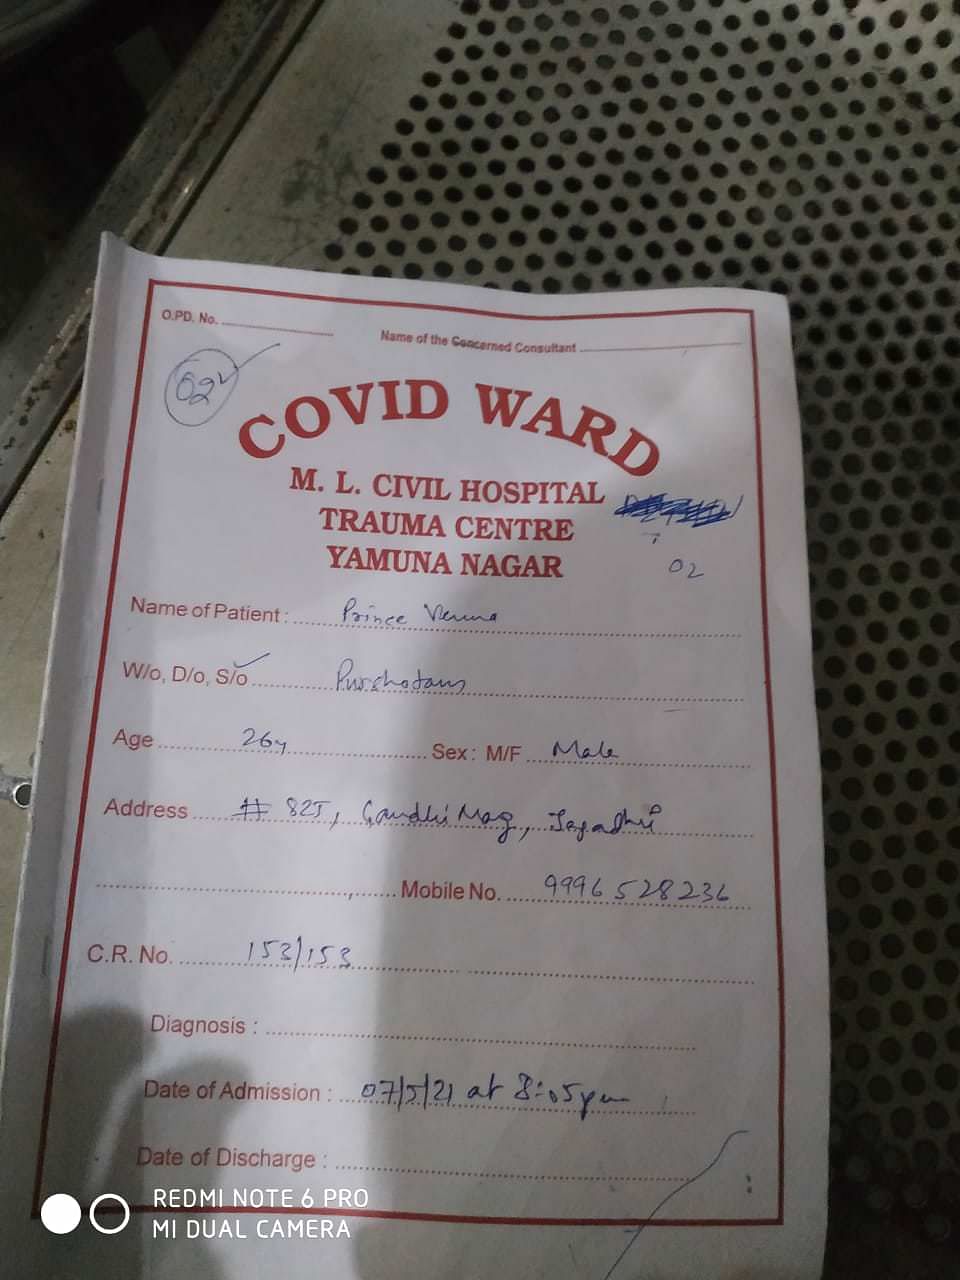 O.P.D. No. ....................
Name of the Concerned Consultant ....................
02
COVID WARD
M. L. CIVIL HOSPITAL
TRAUMA CENTRE
YAMUNA NAGAR
02
Name of Patient : Prince Verma
W/o, D/o, S/o Purshotam
Age 26y Sex : M/F Male
Address # 825, Gandhi Nag, Jagadhri
Mobile No. 9996528236
C.R. No. 153/153
Diagnosis : ....................
Date of Admission : 07/5/21 at 8:05pm
Date of Discharge : ....................
REDMI NOTE 6 PRO
MI DUAL CAMERA